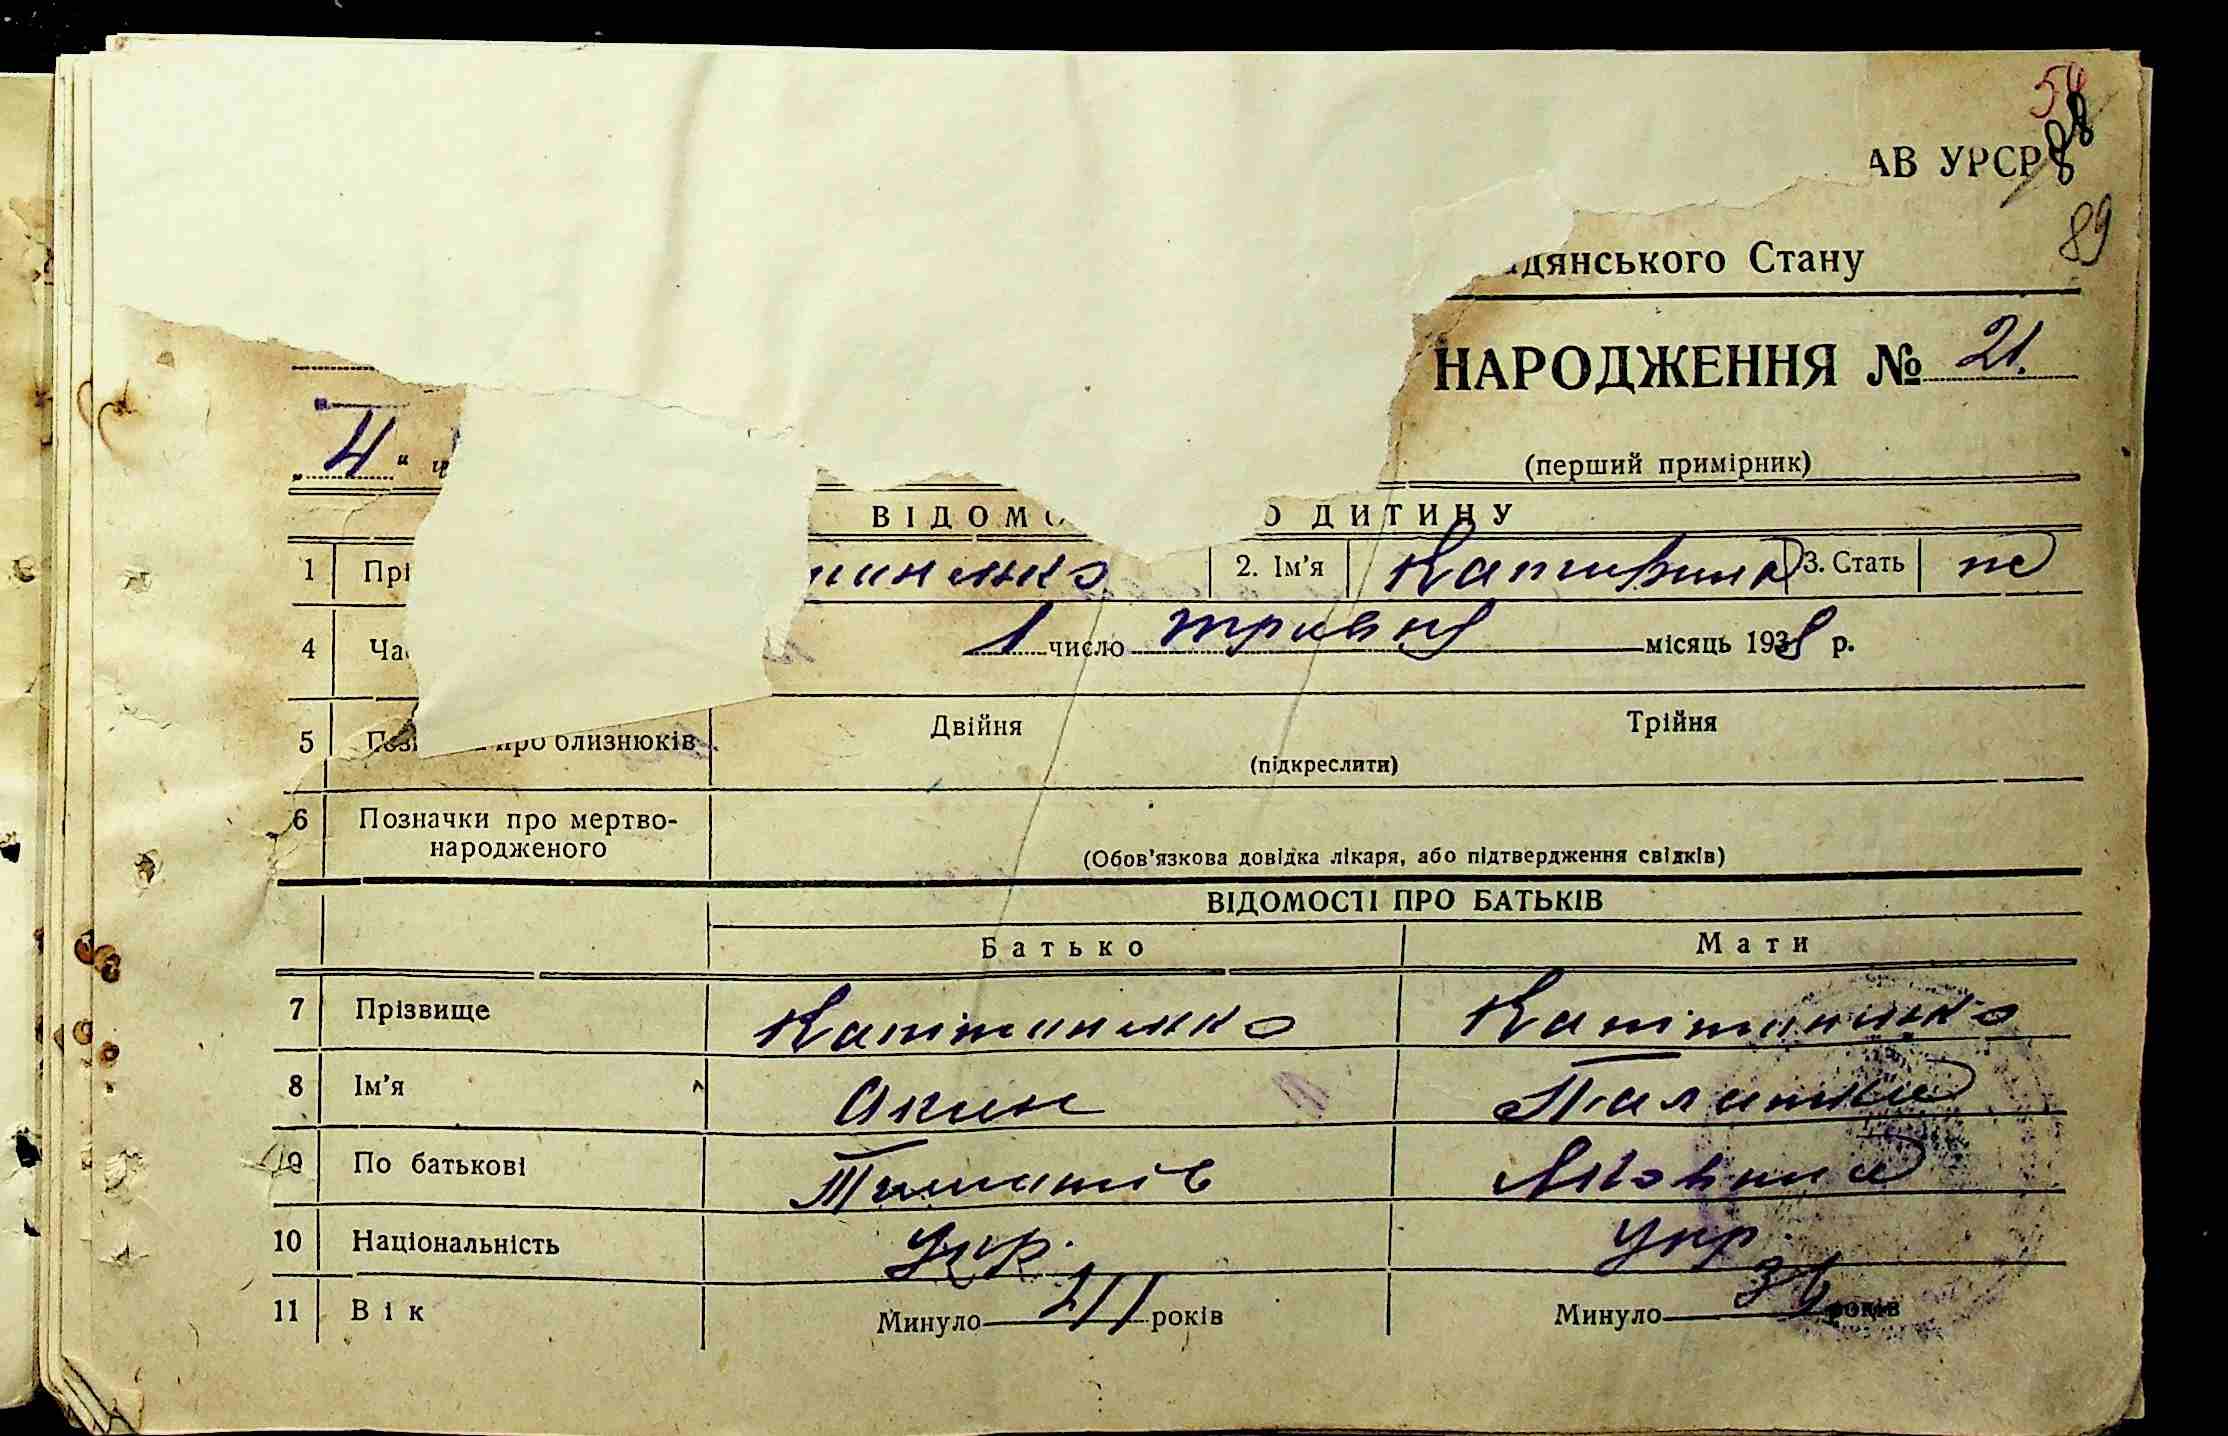 54
88
АВ УРСР
89
дянського Стану
НАРОДЖЕННЯ № 21.
„4“
(перший примірник)
ВІДОМО О ДИТИНУ
1 Прі 2. Ім'я Катирина 3. Стать
4 Ча 1 число травня місяць 1938 р.
5 Поз про близнюків Двійня Трійня
(підкреслити)
6 Позначки про мертво-
народженого
(Обов'язкова довідка лікаря, або підтвердження свідків)
ВІДОМОСТІ ПРО БАТЬКІВ
Батько Мати
7 Прізвище Капітаненко Капітаненко
8 Ім'я Аким
9 По батькові
10 Національність Укр. Укр.
11 Вік Минуло років Минуло років